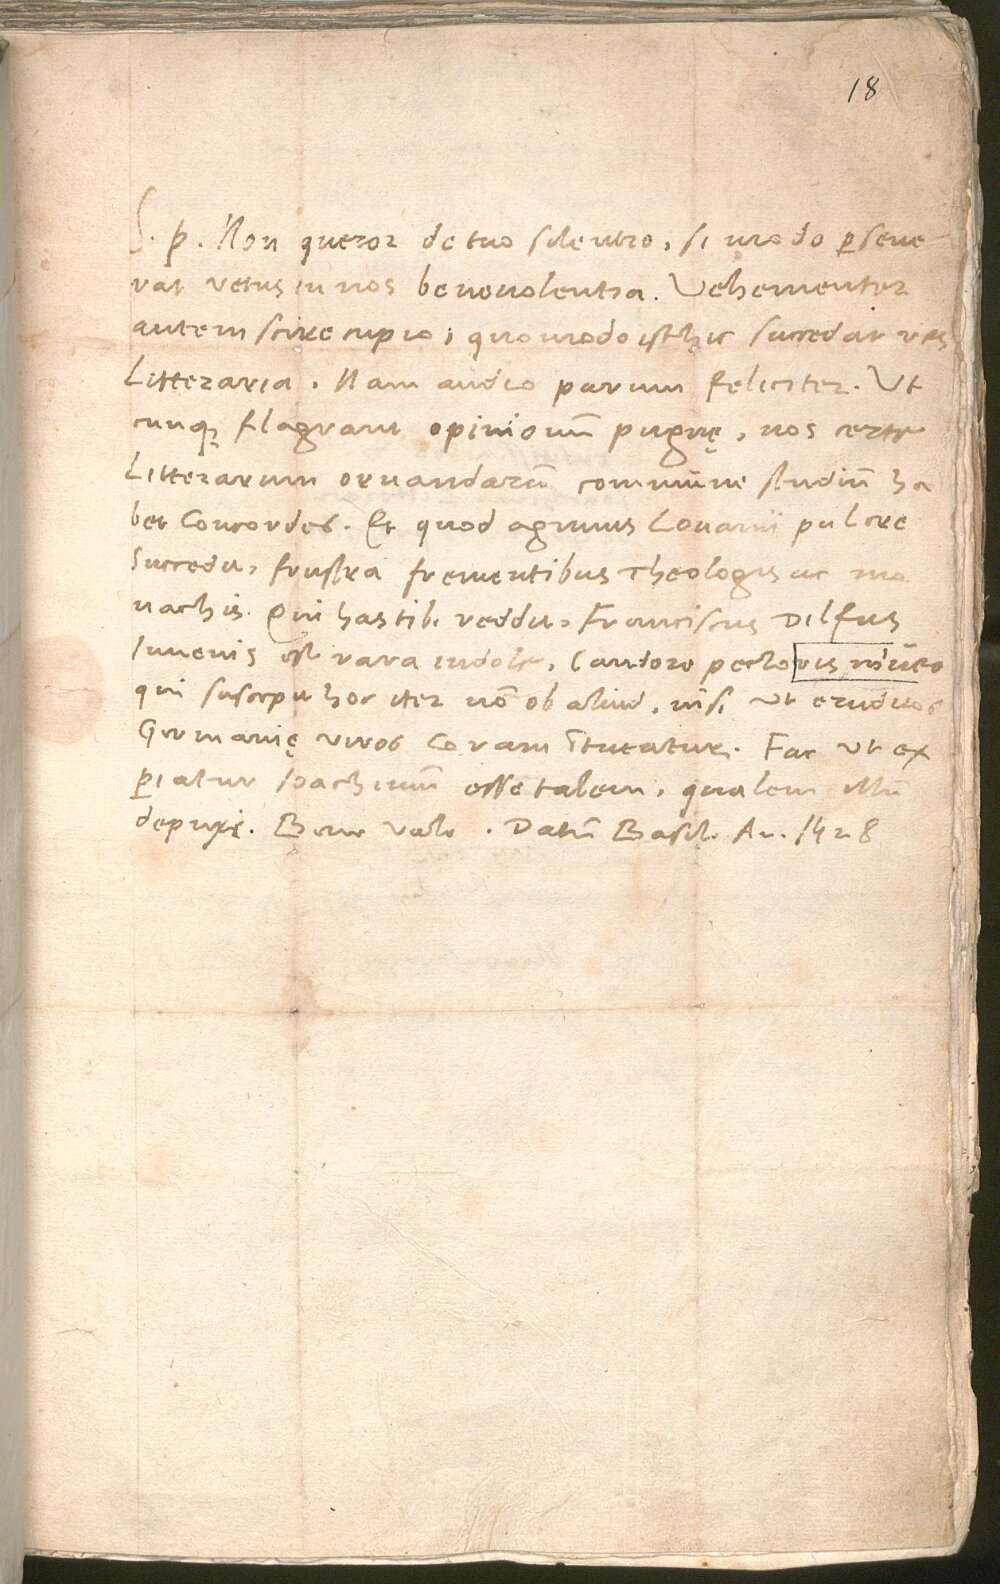 18
S. p. Non queror de tuo silentio, si modo p̱seue
rat vetus in nos beneuolentia. Vehementer
autem scire cupio, quomodo isthic succedat res
Litteraria. Nam audio parum feliciter. Ut
cunq; flagrant opinionū pugnę, nos certe
Litterarum ornandarū commūne studiū ha
bet Concordes. Et quod agimus Louanii pulcre
succedit, frustra frementibus Theologis ac mo
nachis. Qui has tibi reddit, Franciscus Dilfus
Iuuenis est rara indole, Candore pectoris niueo
qui suscepit hoc iter nō ob aliud, nisi ut eruditos
Germanię viros Coram ītueatur. Fac ut ex
p̱iatur Ioachimū esse talem, qualem illū
depinxi. Bene vale. Datū Basil. An. 1428